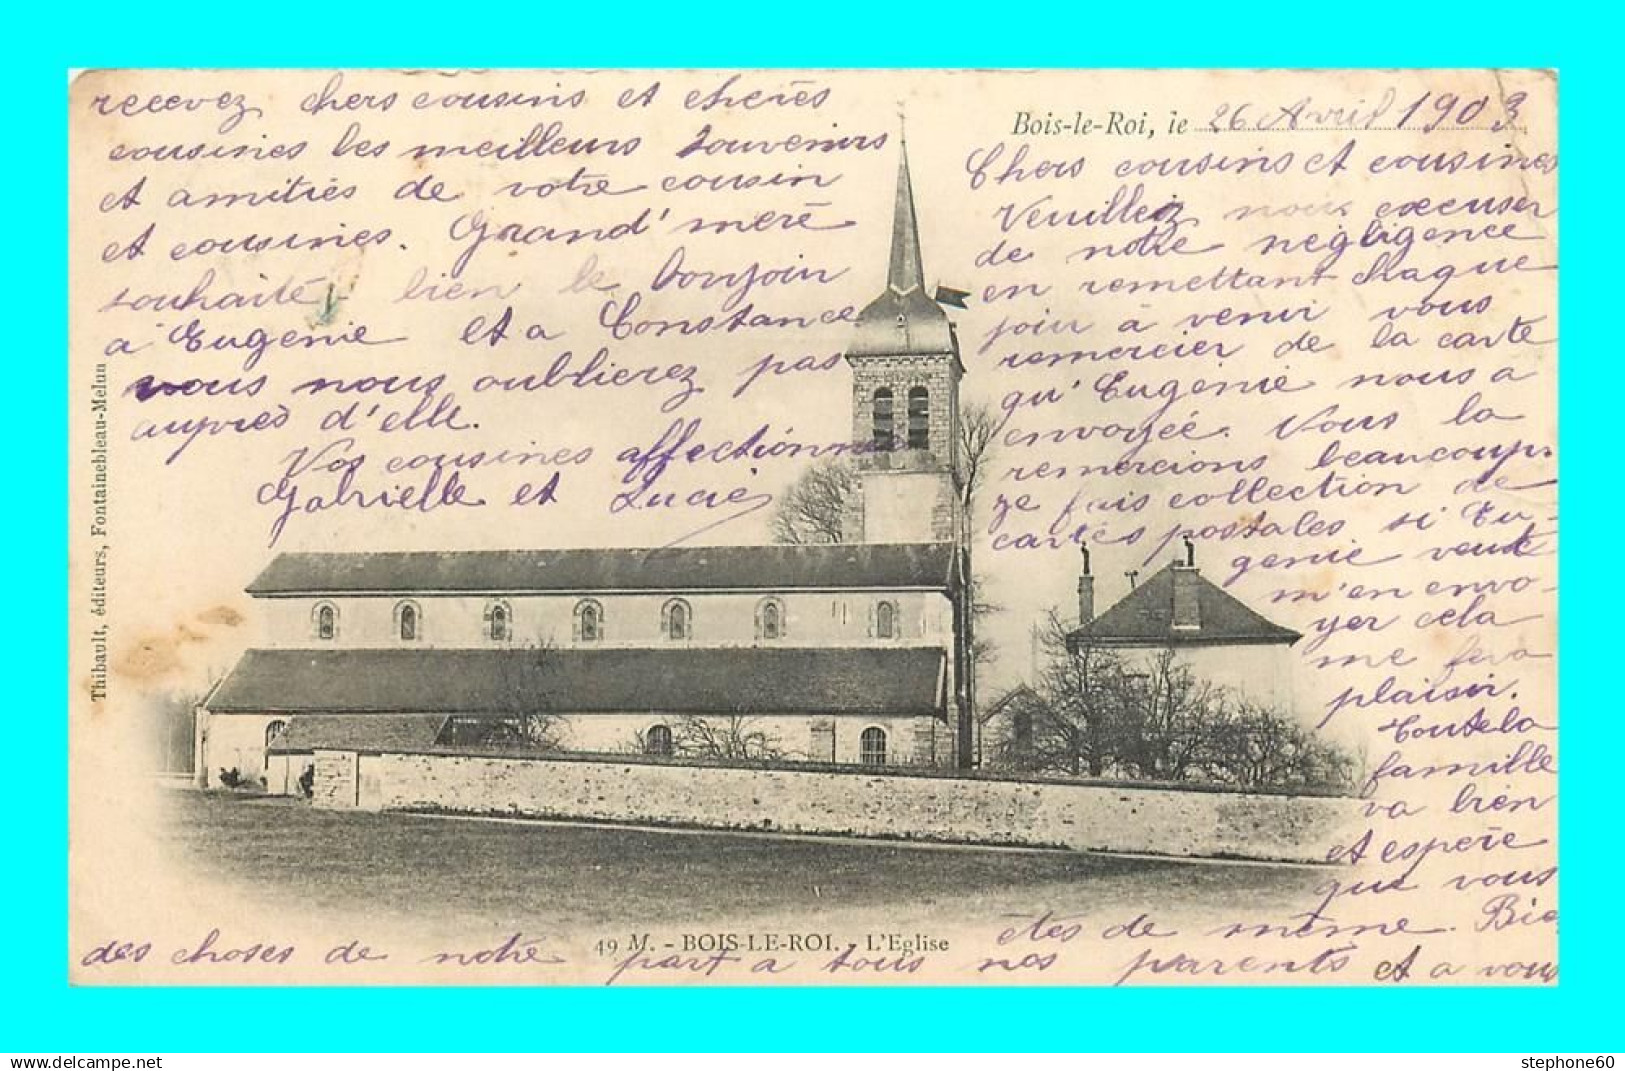 Bois-le-Roi, le 26 Avril 1903
Chers cousins et cousines
Veuillez nous excuser
de notre négligence
en remettant chaque
jour a venir vous
remercier de la carte
qu'Eugénie nous a
envoyée. Vous la
remercions beaucoup
je fais collection de
cartes postales si Eu-
genie veut
m'en envo-
yer cela
me fera
plaisir.
Toute la
famille
va bien
et espère
que vous
êtes de même. Bie
des choses de notre part a tous nos parents et a vous
recevez chers cousins et cheres
cousines les meilleurs souvenirs
et amitiés de votre cousin
et cousines. Grand'mère
souhaite bien le bonjoin
a Eugenie et a Constance
vous nous oublierez pas
auprès d'elle.
Vos cousines affectionnées
Gabrielle et Lucie
Thibault, éditeurs, Fontainebleau-Melun
49 M. - BOIS-LE-ROI. - L'Eglise
https://www.delcampe.net
stephone60